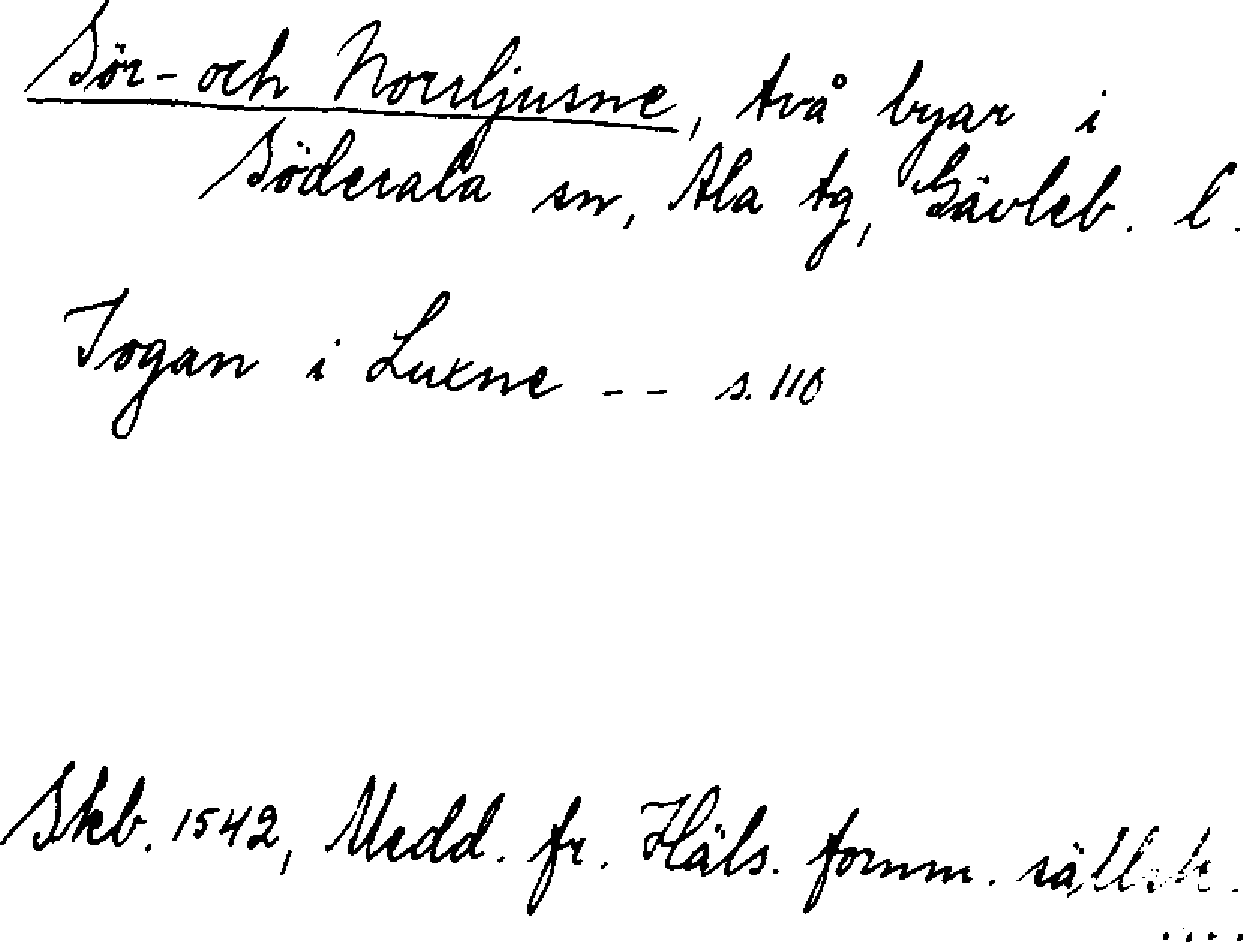 Sör- och Norrljusne, två byar i
Söderala sn, Ala tg, Gävleb. l.
Jogan i Luxne -- s. 110
Skb. 1542, Medd. fr. Häls. fornm. sällsk.